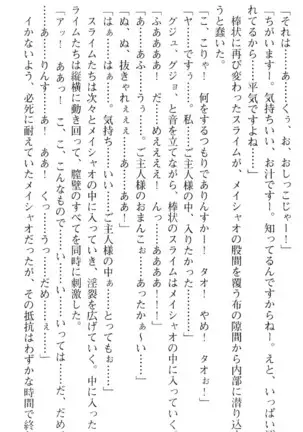 「それは……あ……くぅ、お、おしっこじゃー！」
「ちがいます。気持ちいい、お汁です！　知ってるんですからね―。えと、いっぱい
れてるから……平気ですよね……」
棒状に再び変わったスライムが、メイシャオの股間を覆う布の隙間から内部に潜り込
うと蠢いた。
「こ、こりゃ！　何をするつもりでありんすかー！　タオ！　やめ！　タオぉ！」
「ヤ……です……。私……ご主人様の中、入りたかった……」
グジュ、グジョ、と音を立てながら、棒状のスライムはメイシャオの中に入っていく
「ふぁあああ！
「あ……あふ……うぅ……ご主人様のおまんこぉ……あったかぁ～い」
「ぬ、ぬ、抜きゃれぇ
「はぁ……はぁ……。気持ち……いい……ご主人様の中ぁ……とってもぉ……」
スライムたちは次々とメイシャオの中に入っていき、淫裂を広げていく。中に入った
ライムたちは縦横に動き回って、膣壁のすべてを同時に刺激した。
「アッ！　ああっ！　こ、こ、こんなもので……い、い……いっては……だ、だめ
あ……ありんすぅ……あ！　ああ！　くっ……うっ……だめぇ
イかないよう、必死に耐えていたメイシャオだったが、その抵抗はわずかな時間で終